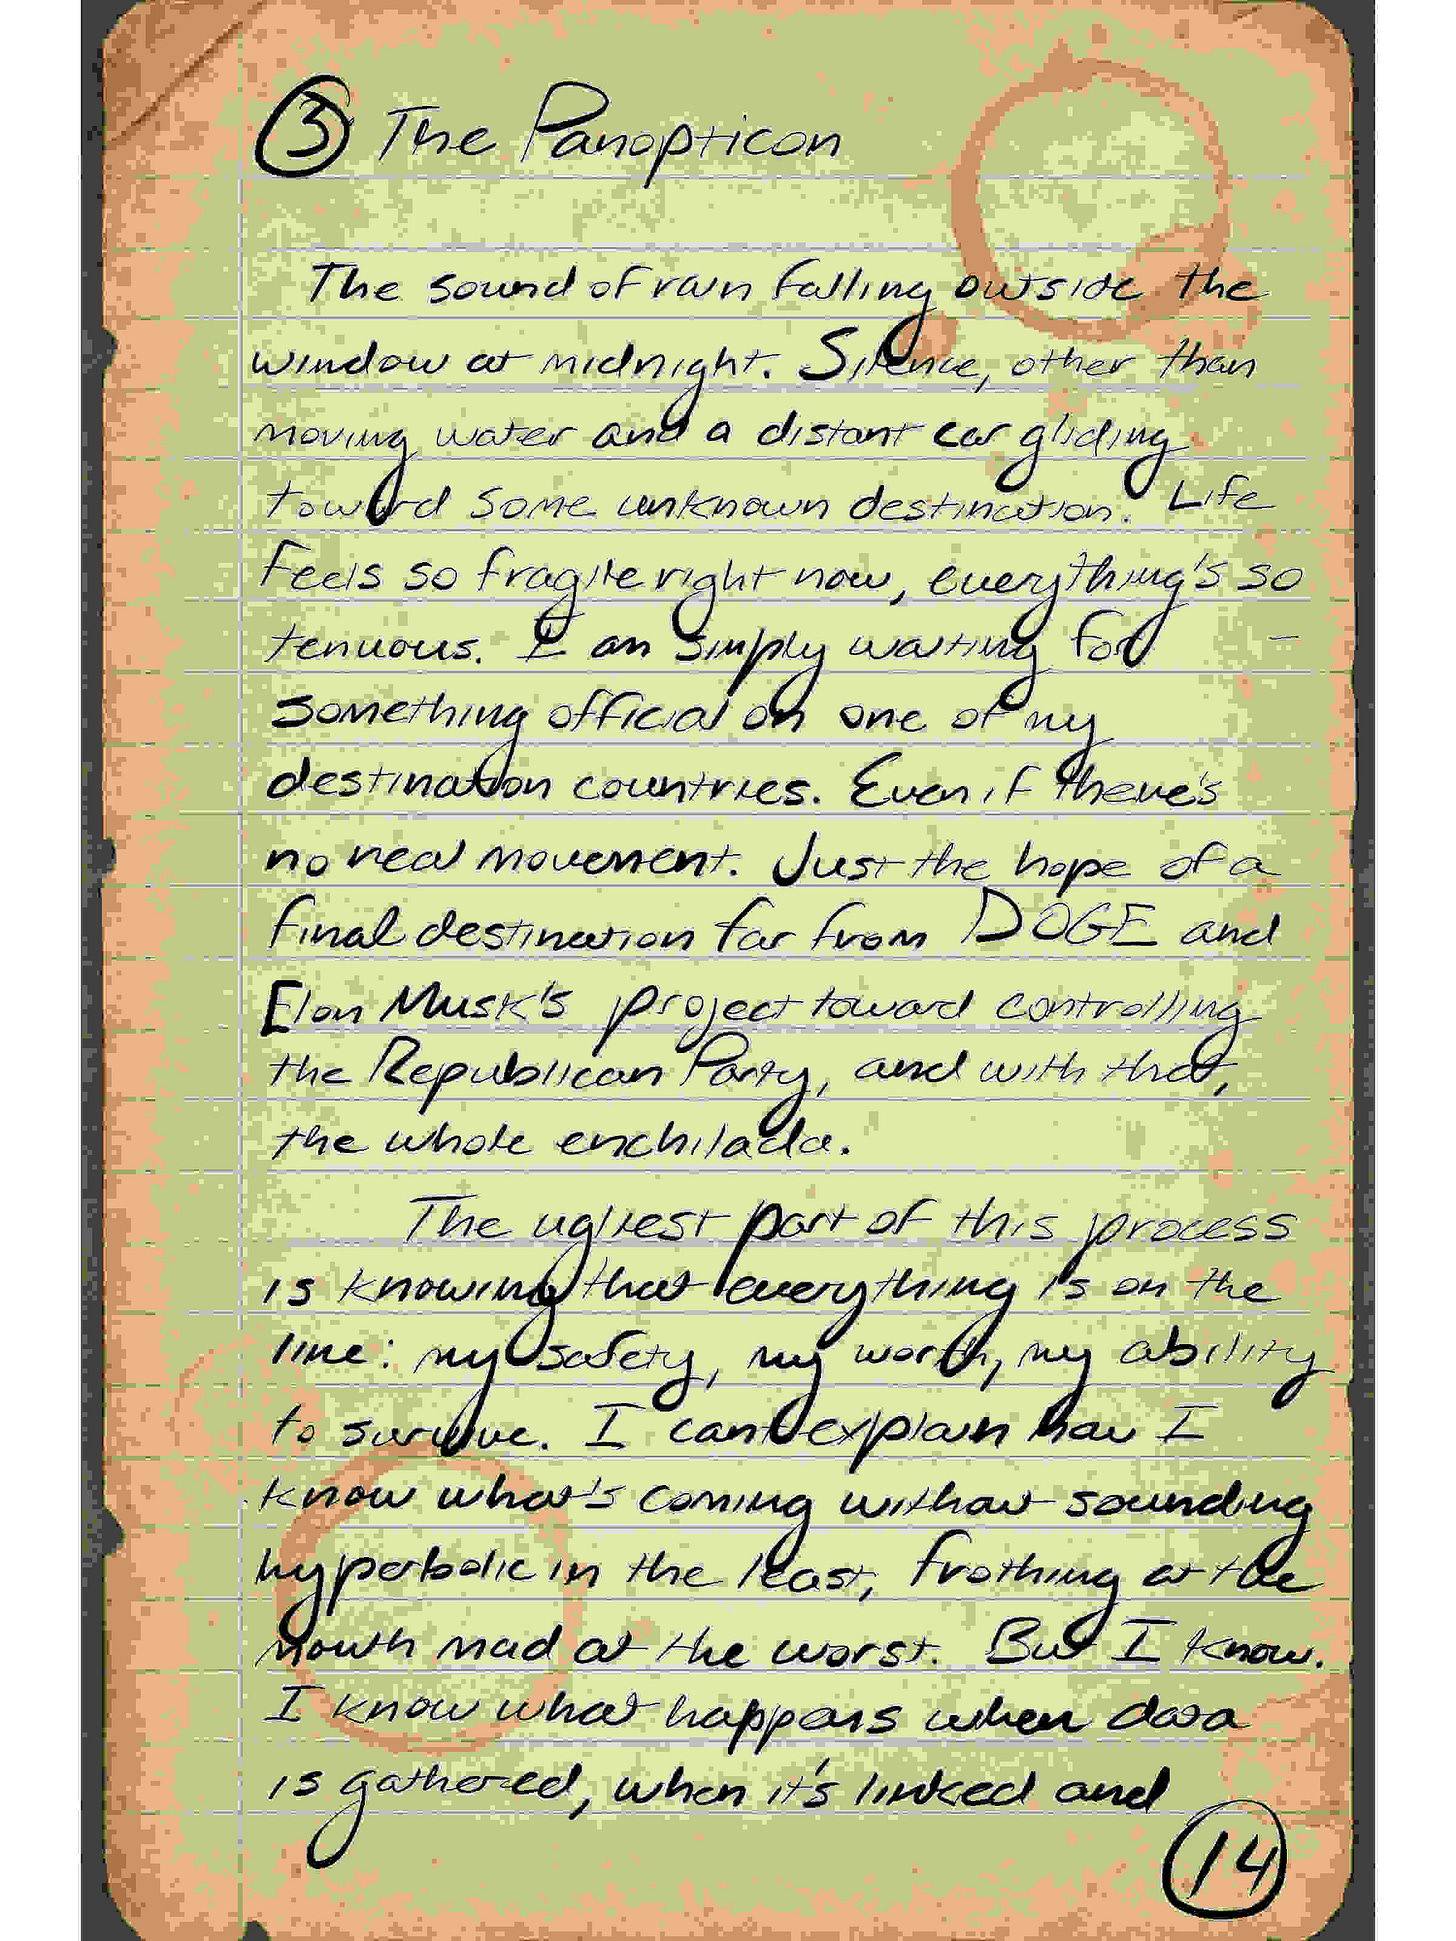 3 The Panopticon
The sound of rain falling outside the
window at midnight. Silence, other than
moving water and a distant car gliding
toward some unknown destination. Life
feels so fragile right now, everything's so
tenuous. I am simply waiting for -
something official on one of my
destination countries. Even if there's
no real movement. Just the hope of a
final destination far from DOGE and
Elon Musk's project toward controlling
the Republican Party, and with that,
the whole enchilada.
The ugliest part of this process
is knowing that everything is on the
line: my safety, my worth, my ability
to survive. I can't explain how I
know what's coming without sounding
hyperbolic in the least, frothing at the
mouth mad at the worst. But I know.
I know what happens when data
is gathered, when it's linked and
14